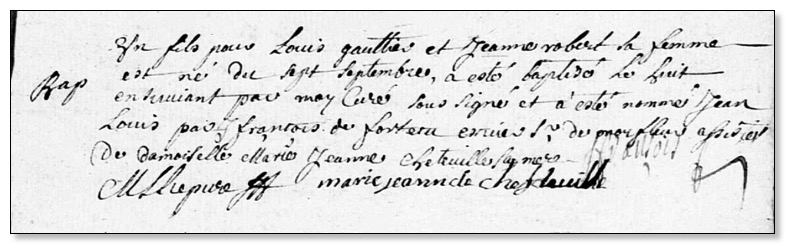 Bap
Un fils pour Louis gaultier et Jeanne robert sa femme
est né du sept septembre, a esté baptisé le huit
ensuivant par moy Curé sous signé et a esté nommé Jean
Louis par françois de forteru ecuier Sr. de assisté
de damoiselle Marie Jeanne
marie jeanne de